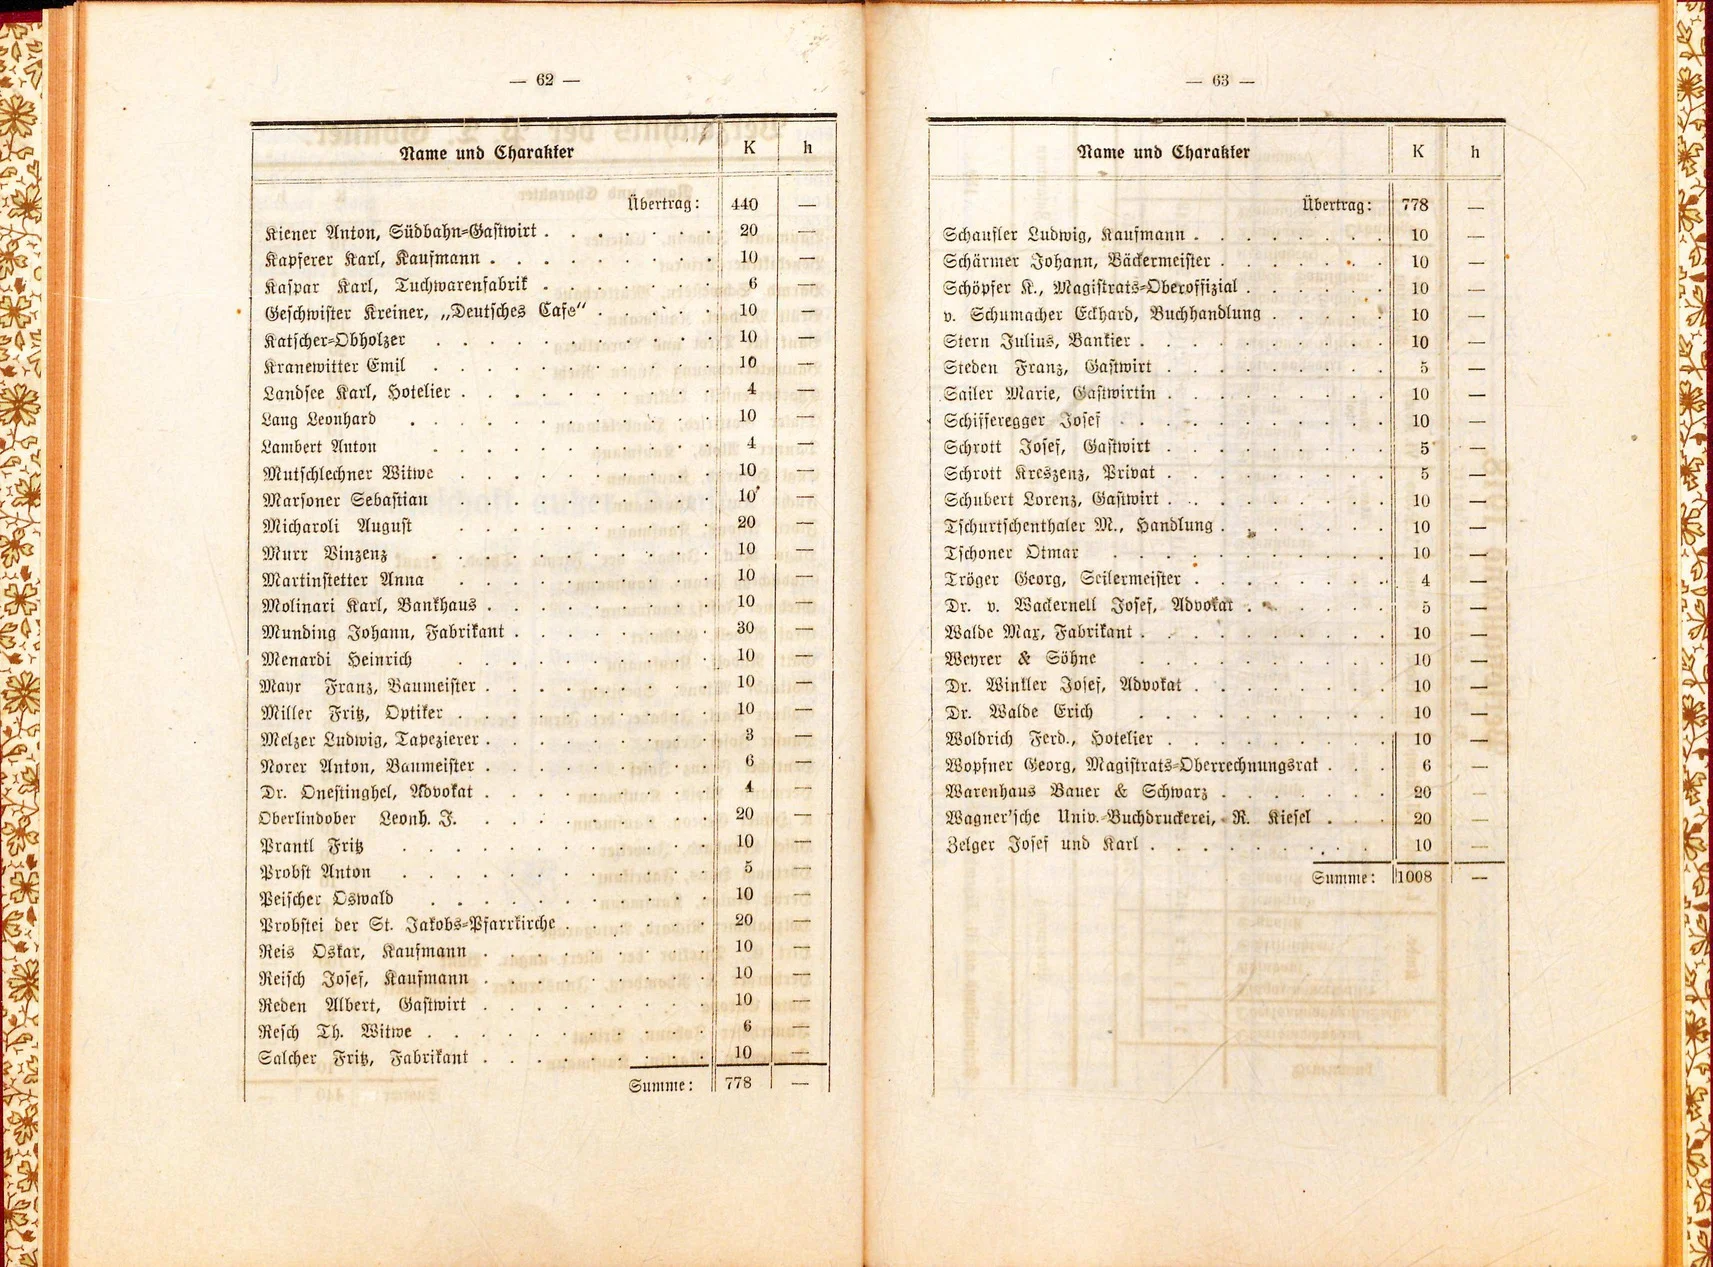 — 62 —
Name und Charakter K h
Übertrag: 440 —
Kiener Anton, Südbahn-Gastwirt . . . . . . . 20 —
Kapferer Karl, Kaufmann . . . . . . . . . 10 —
Kaspar Karl, Tuchwarenfabrik . . . . . . . 6 —
Geschwister Kreiner, „Deutsches Cafe“ . . . . . 10 —
Katscher-Obholzer . . . . . . . . . . . 10 —
Kranewitter Emil . . . . . . . . . . . 10 —
Landsee Karl, Hotelier . . . . . . . . . . 4 —
Lang Leonhard . . . . . . . . . . . . 10 —
Lambert Anton . . . . . . . . . . . 4 —
Mutschlechner Witwe . . . . . . . . . . 10 —
Marsoner Sebastian . . . . . . . . . . 10 —
Micharoli August . . . . . . . . . . 20 —
Murr Vinzenz . . . . . . . . . . . 10 —
Martinstetter Anna . . . . . . . . . . 10 —
Molinari Karl, Bankhaus . . . . . . . . . 10 —
Munding Johann, Fabrikant . . . . . . . . 30 —
Menardi Heinrich . . . . . . . . . . 10 —
Mayr Franz, Baumeister . . . . . . . . . 10 —
Miller Fritz, Optiker . . . . . . . . . . 10 —
Melzer Ludwig, Tapezierer . . . . . . . . . 3 —
Norer Anton, Baumeister . . . . . . . . . 6 —
Dr. Onestinghel, Advokat . . . . . . . . . 4 —
Oberlindober Leonh. J. . . . . . . . . . 20 —
Prantl Fritz . . . . . . . . . . . . 10 —
Probst Anton . . . . . . . . . . . . 5 —
Peischer Oswald . . . . . . . . . . . 10 —
Probstei der St. Jakobs-Pfarrkirche . . . . . . 20 —
Reis Oskar, Kaufmann . . . . . . . . . 10 —
Reisch Josef, Kaufmann . . . . . . . . . 10 —
Reden Albert, Gastwirt . . . . . . . . . 10 —
Resch Th. Witwe . . . . . . . . . . . 6 —
Salcher Fritz, Fabrikant . . . . . . . . . 10 —
Summe: 778 —
— 63 —
Name und Charakter K h
Übertrag: 778 —
Schaufler Ludwig, Kaufmann . . . . . . . . 10 —
Schärmer Johann, Bäckermeister . . . . . . . 10 —
Schöpfer K., Magistrats-Oberoffizial . . . . . . 10 —
v. Schumacher Eckhard, Buchhandlung . . . . . 10 —
Stern Julius, Bankier . . . . . . . . . . 10 —
Steden Franz, Gastwirt . . . . . . . . . 5 —
Sailer Marie, Gastwirtin . . . . . . . . . 10 —
Schifferegger Josef . . . . . . . . . . . 10 —
Schrott Josef, Gastwirt . . . . . . . . . 5 —
Schrott Kreszenz, Privat . . . . . . . . . 5 —
Schubert Lorenz, Gastwirt . . . . . . . . . 10 —
Tschurtschenthaler M., Handlung . . . . . . . 10 —
Tschoner Otmar . . . . . . . . . . . 10 —
Tröger Georg, Seilermeister . . . . . . . . 4 —
Dr. v. Wackernell Josef, Advokat . . . . . . 5 —
Walde Max, Fabrikant . . . . . . . . . . 10 —
Weyrer & Söhne . . . . . . . . . . 10 —
Dr. Winkler Josef, Advokat . . . . . . . . 10 —
Dr. Walde Erich . . . . . . . . . . 10 —
Woldrich Ferd., Hotelier . . . . . . . . . 10 —
Wopfner Georg, Magistrats-Oberrechnungsrat . . . 6 —
Warenhaus Bauer & Schwarz . . . . . . . 20 —
Wagner'sche Univ.-Buchdruckerei, R. Kiesel . . . 20 —
Zelger Josef und Karl . . . . . . . . . 10 —
Summe: 1008 —